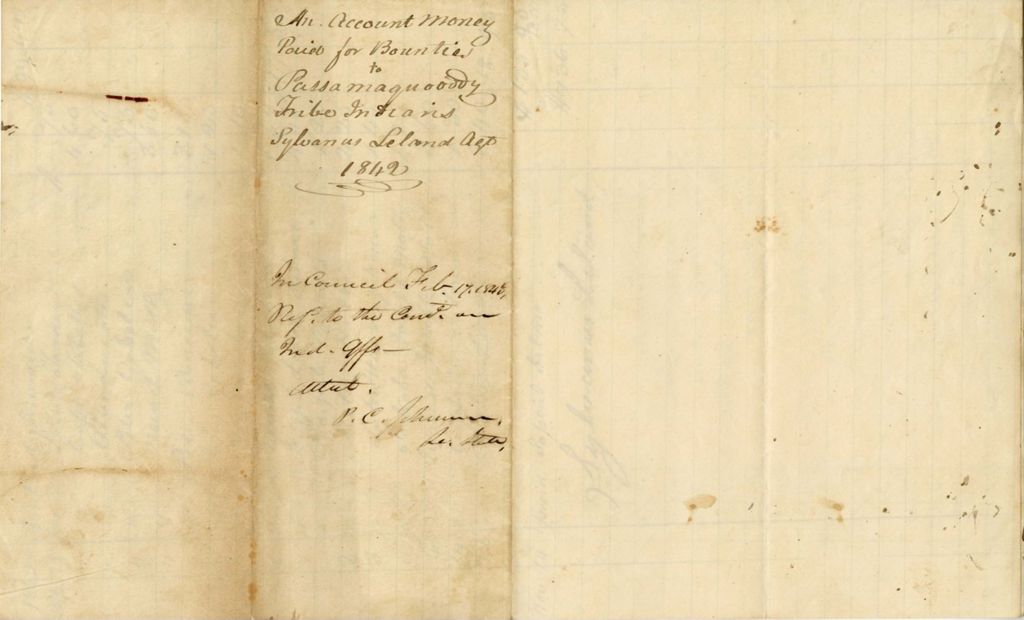 An. Account Money
Paid for Bounties
to
Passamaquooddy
Tribe Indians
Sylvanus Leland Agt
1842
In Council Feb. 17. 1843,
Ref. to the Comt. on
Ind. Affs—
Attest.
P. C. Johnson,
Se. State,
Sylvanus Leland